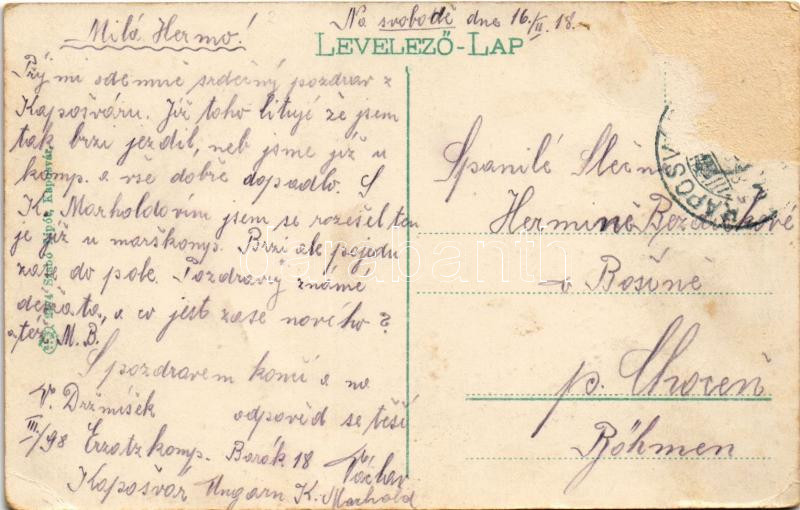 Na svobodě dne 16/II. 18.
Milá Hermo!
LEVELEZŐ-LAP
Přijmi odemně srdečný pozdrav z
Kapošváru. Již toho lituji že jsem
tak brzi jezdil, neb jsme již u
komp. a vše dobře dopadlo. S
K. Marholdovím jsem se rozešel ten
je již u marškomp. Brzi ale pojedu
zase do pole. Pozdravuj známé
děvčata, a co jest zase nového?
a též M. B.
S pozdravem končí a na
odpověd se těší
V. Držmíšek
III/98 Erzatzkomp. Barák 18 Václav
Kapošvár Ungarn K. Marhold
Spanilé Slečně
Hermině
v Bošíně
p. Choceň
Böhmen
KAPOSV
Kaposvár